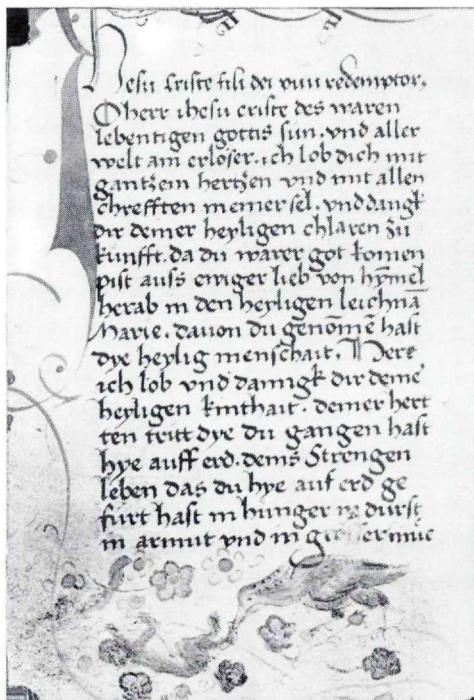 Jesu Criste fili dei viui redemptor,
O herr ihesu criste des waren
lebentigen gottis sun. vnd aller
welt ain erlöser. ich lob dich mit
gantzem hertzen vnd mit allen
chrefften meiner sel. vnd dangk
dir deiner heyligen chlaren zu
kunfft. da du warer got komen
pist auss ewiger lieb von hÿmel
herab in den heyligen leichnā
Marie. dauon du genōmē hast
dye heylig menschait. Herr
ich lob vnd danngk dir deine
heyligen kinthait. deiner hert
ten tritt dye du gangen hast
hye auff erd. deins Strengen
leben das du hye auf erd ge
furt hast in hunger in durst
in armut vnd in grosser mue